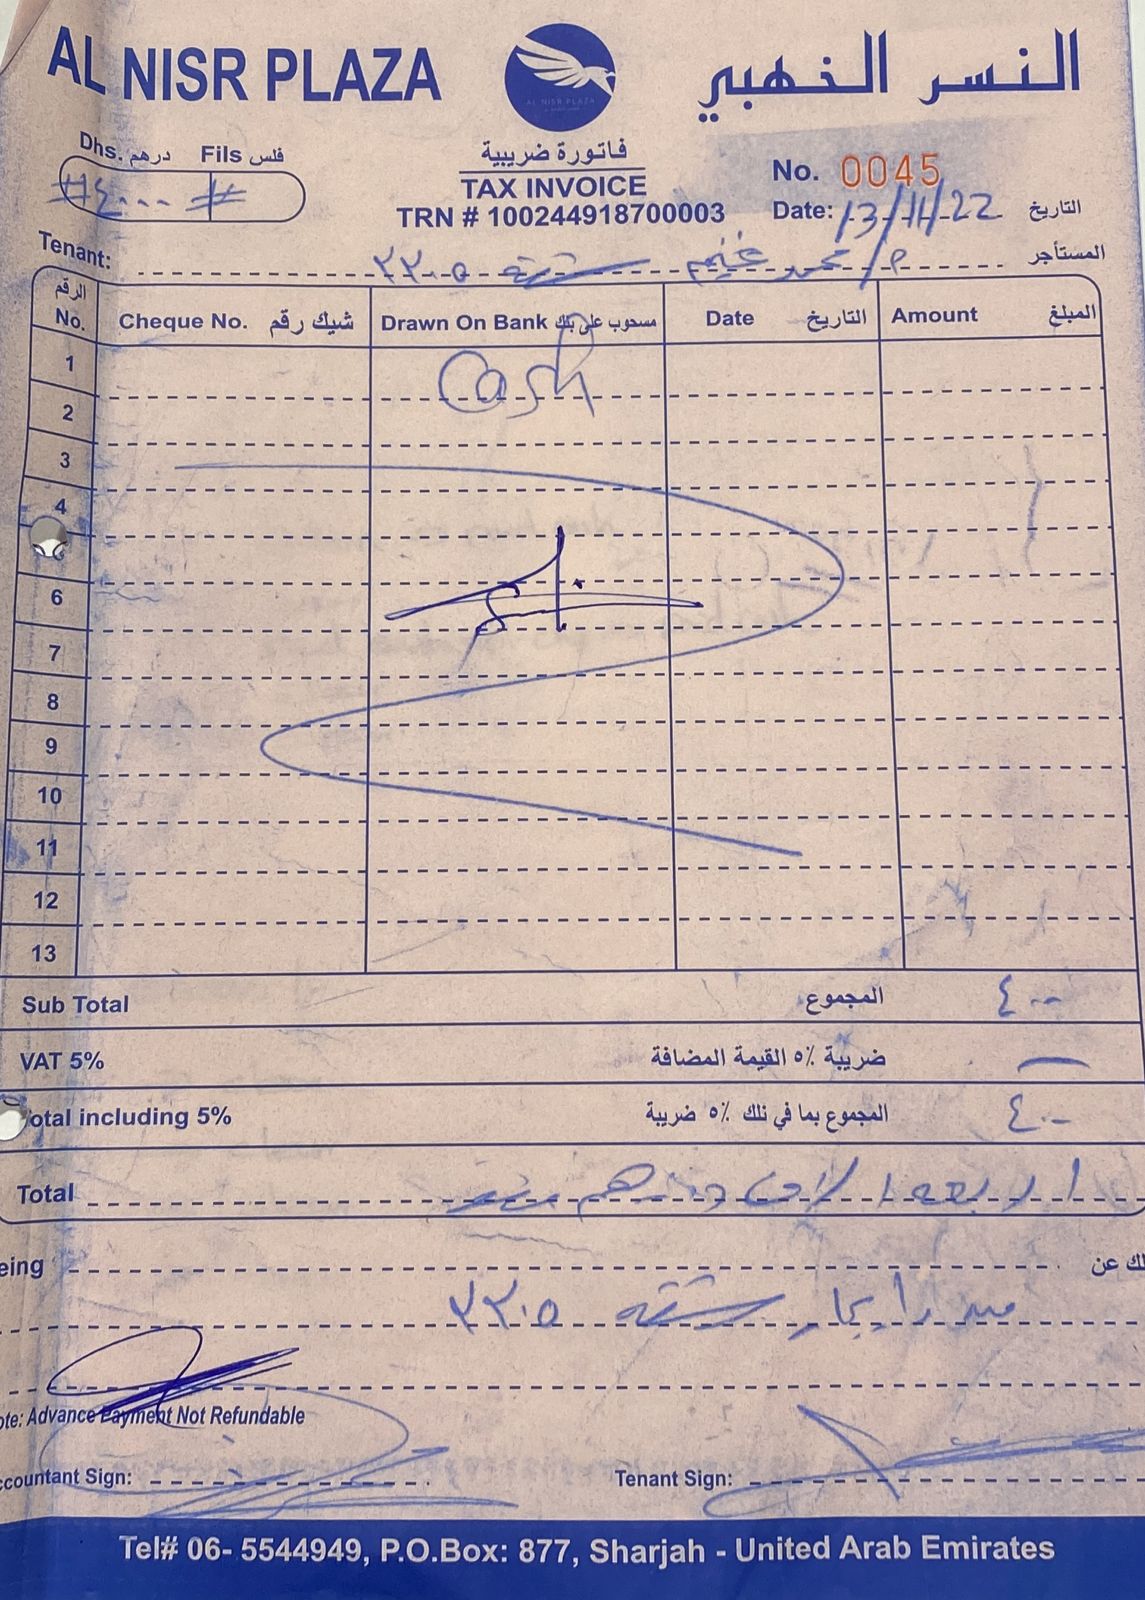 AL NISR PLAZA
النسر الذهبي
AL NISR PLAZA
Dhs. درهم Fils فلس
# ٤٠٠٠ #
فاتورة ضريبية
TAX INVOICE
TRN # 100244918700003
No. 0045
Date: 13/11/22 التاريخ
Tenant: م/ محمد غنيم شقة ٣٣٠٥ المستأجر
الرقم No. Cheque No. شيك رقم Drawn On Bank مسحوب على بنك Date التاريخ Amount المبلغ
1
Cash
2
3
4
6
7
8
9
10
11
12
13
Sub Total المجموع ٤٠٠٠
VAT 5% ضريبة ٥٪ القيمة المضافة —
otal including 5% المجموع بما في ذلك ٥٪ ضريبة ٤٠٠٠
Total اربعة الاف درهم فقط
eing لك عن
من ايجار شقة ٣٣٠٥
ote: Advance Payment Not Refundable
ccountant Sign: Tenant Sign:
Tel# 06- 5544949, P.O.Box: 877, Sharjah - United Arab Emirates